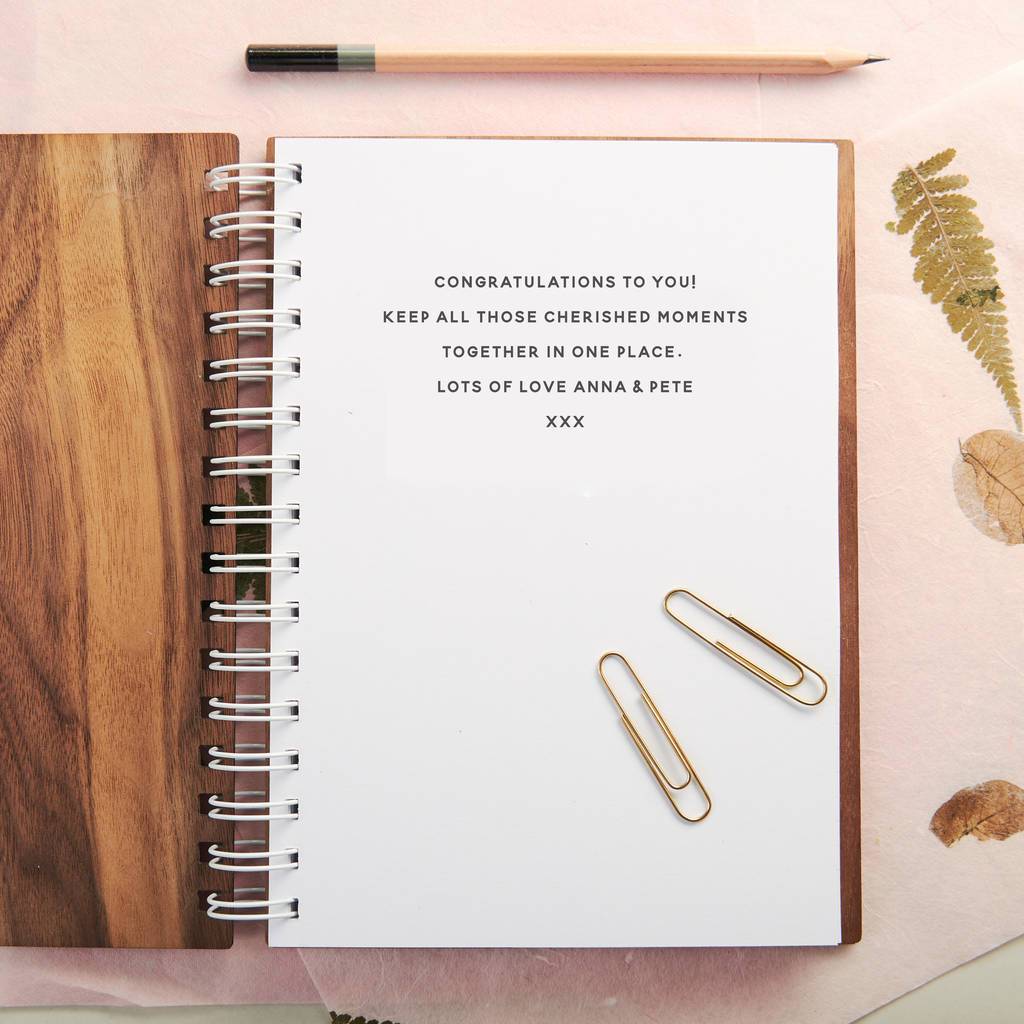 CONGRATULATIONS TO YOU!
KEEP ALL THOSE CHERISHED MOMENTS
TOGETHER IN ONE PLACE.
LOTS OF LOVE ANNA & PETE
XXX